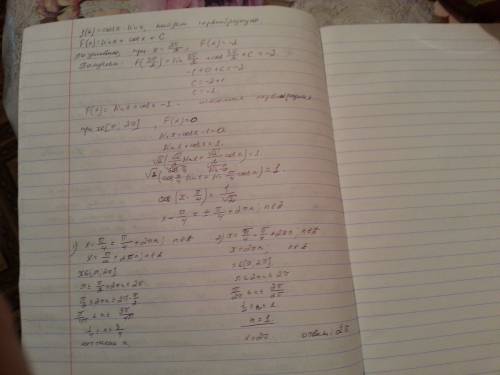 f(x)=cosx-sinx, найдем первообразную
F(x)=sinx+cosx+C
по условию, при x = 3π/2, F(x)=-2
Получаем: F(3π/2)=sin 3π/2 + cos 3π/2 + C = -2
-1+0+C=-2
C=-2+1
C=-1
F(x)= sinx+cosx-1 первообразная
при x∈[π, 2π], F(x)=0
sinx+cosx-1=0
sinx+cosx=1
√2(√2/2 sinx+ √2/2 cosx)=1
√2(cos π/4 sinx+ sin π/4 cosx)=1.
cos(x-π/4)= 1/√2
x-π/4 = ± π/4 +2πn; n∈Z
1) x= π/4 + π/4 +2πn; n∈Z
x= π/2 +2πn; n∈Z
x∈[π, 2π]
π≤ π/2 +2πn≤2π
π/2≤2πn≤2π-π/2
π/4π≤n≤ 3π/4π
1/4≤n≤3/4
нет таких n
2) x= π/4 - π/4 +2πn; n∈Z
x=2πn, n∈Z
x∈[π, 2π]
π≤2πn≤2π
π/2π≤n≤ 2π/2π
1/2≤n≤1
n=1
x=2π
ответ: 2π